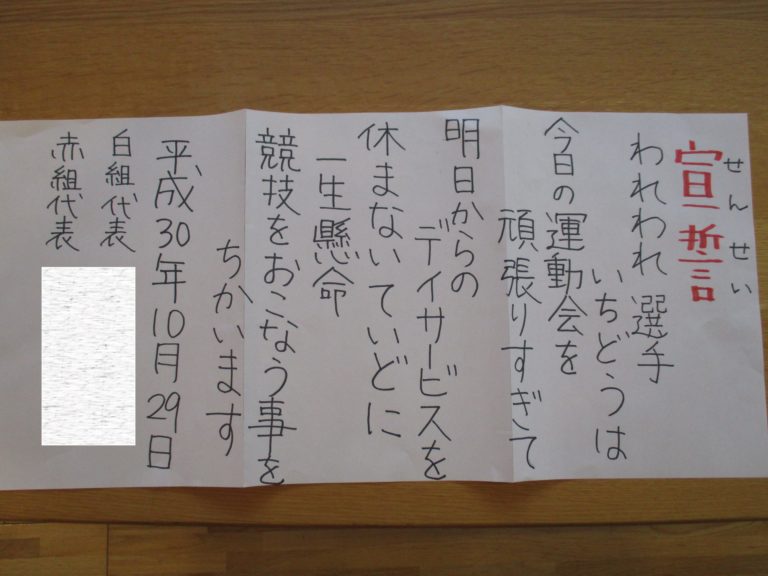 宣誓
せんせい
われわれ選手
いちどうは
今日の運動会を
頑張りすぎて
明日からの
デイサービスを
休まないていどに
一生懸命
競技をおこなう事を
ちかいます
平成30年10月29日
白組代表
赤組代表